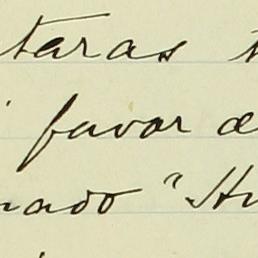 taras t
favor d
nado "Hu